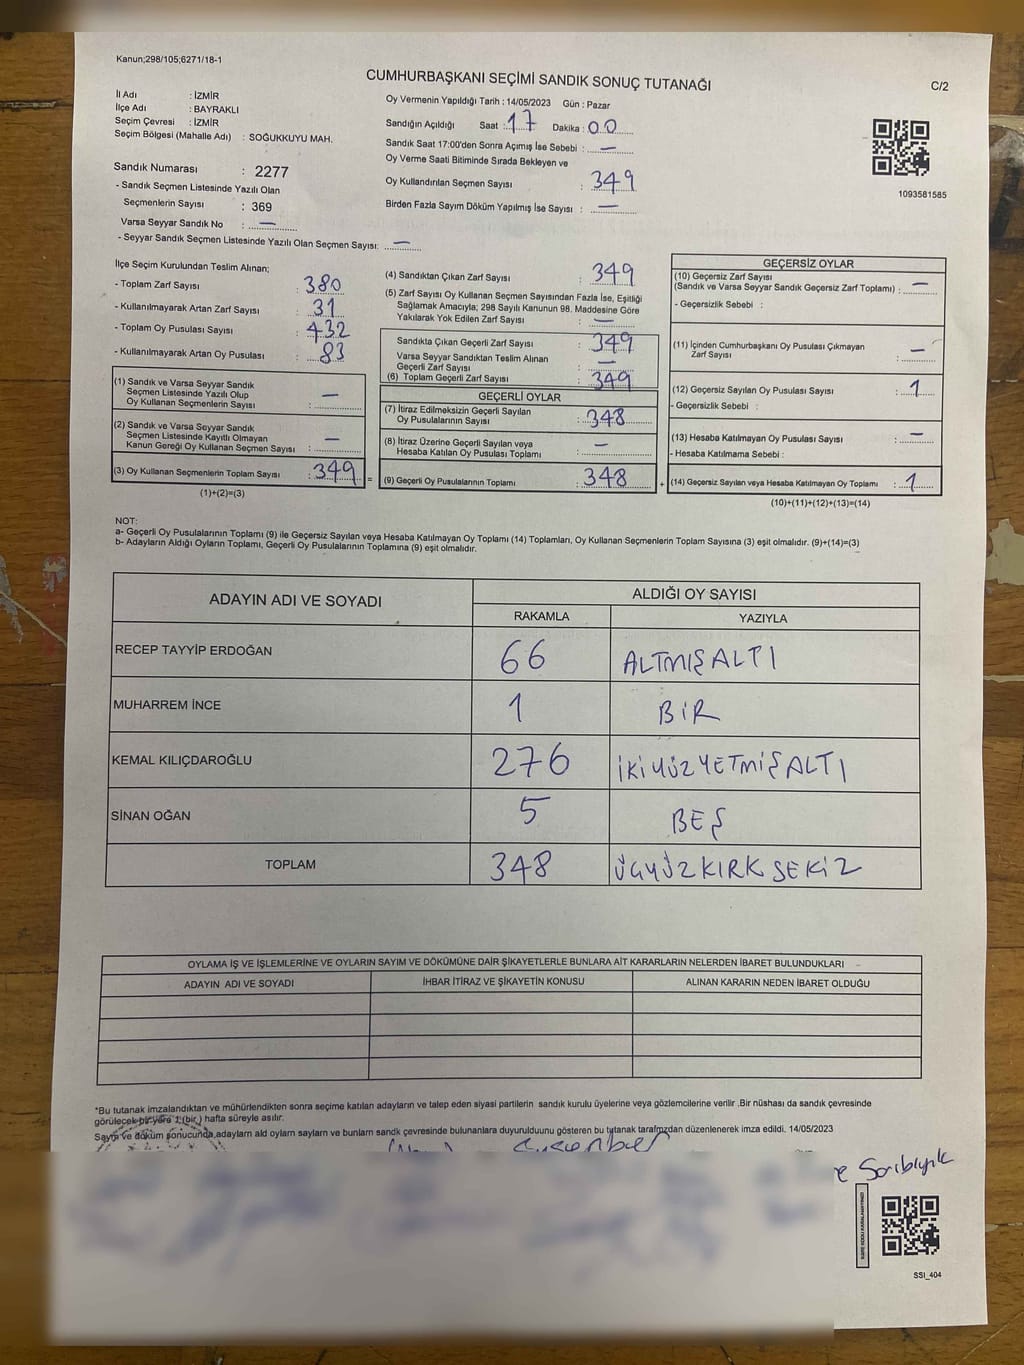 Kanun;298/105;6271/18-1
CUMHURBAŞKANI SEÇİMİ SANDIK SONUÇ TUTANAĞI
C/2
İl Adı : İZMİR
İlçe Adı : BAYRAKLI
Seçim Çevresi : İZMİR
Seçim Bölgesi (Mahalle Adı) : SOĞUKKUYU MAH.
Sandık Numarası : 2277
- Sandık Seçmen Listesinde Yazılı Olan
Seçmenlerin Sayısı : 369
Varsa Seyyar Sandık No : —
- Seyyar Sandık Seçmen Listesinde Yazılı Olan Seçmen Sayısı: —
Oy Vermenin Yapıldığı Tarih : 14/05/2023 Gün : Pazar
Sandığın Açıldığı Saat : 17 Dakika : 00
Sandık Saat 17:00'den Sonra Açımış İse Sebebi : —
Oy Verme Saati Bitiminde Sırada Bekleyen ve
Oy Kullandırılan Seçmen Sayısı : 349
Birden Fazla Sayım Döküm Yapılmış İse Sayısı : —
1093581585
İlçe Seçim Kurulundan Teslim Alınan;
- Toplam Zarf Sayısı : 380
- Kullanılmayarak Artan Zarf Sayısı : 31
- Toplam Oy Pusulası Sayısı : 432
- Kullanılmayarak Artan Oy Pusulası : 83
(1) Sandık ve Varsa Seyyar Sandık
Seçmen Listesinde Yazılı Olup
Oy Kullanan Seçmenlerin Sayısı : —
(2) Sandık ve Varsa Seyyar Sandık
Seçmen Listesinde Kayıtlı Olmayan
Kanun Gereği Oy Kullanan Seçmen Sayısı : —
(3) Oy Kullanan Seçmenlerin Toplam Sayısı : 349
(1)+(2)=(3)
(4) Sandıktan Çıkan Zarf Sayısı : 349
(5) Zarf Sayısı Oy Kullanan Seçmen Sayısından Fazla İse, Eşitliği
Sağlamak Amacıyla; 298 Sayılı Kanunun 98. Maddesine Göre
Yakılarak Yok Edilen Zarf Sayısı : —
Sandıkta Çıkan Geçerli Zarf Sayısı : 349
Varsa Seyyar Sandıktan Teslim Alınan
Geçerli Zarf Sayısı : —
(6) Toplam Geçerli Zarf Sayısı : 349
GEÇERLİ OYLAR
(7) İtiraz Edilmeksizin Geçerli Sayılan
Oy Pusulalarının Sayısı : 348
(8) İtiraz Üzerine Geçerli Sayılan veya
Hesaba Katılan Oy Pusulası Toplamı : —
= (9) Geçerli Oy Pusulalarının Toplamı : 348
GEÇERSİZ OYLAR
(10) Geçersiz Zarf Sayısı
(Sandık ve Varsa Seyyar Sandık Geçersiz Zarf Toplamı) : —
- Geçersizlik Sebebi :
(11) İçinden Cumhurbaşkanı Oy Pusulası Çıkmayan
Zarf Sayısı : —
(12) Geçersiz Sayılan Oy Pusulası Sayısı : 1
- Geçersizlik Sebebi :
(13) Hesaba Katılmayan Oy Pusulası Sayısı : —
- Hesaba Katılmama Sebebi :
+ (14) Geçersiz Sayılan veya Hesaba Katılmayan Oy Toplamı : 1
(10)+(11)+(12)+(13)=(14)
NOT:
a- Geçerli Oy Pusulalarının Toplamı (9) ile Geçersiz Sayılan veya Hesaba Katılmayan Oy Toplamı (14) Toplamları, Oy Kullanan Seçmenlerin Toplam Sayısına (3) eşit olmalıdır. (9)+(14)=(3)
b- Adayların Aldığı Oyların Toplamı, Geçerli Oy Pusulalarının Toplamına (9) eşit olmalıdır.
ADAYIN ADI VE SOYADI ALDIĞI OY SAYISI
RAKAMLA YAZIYLA
RECEP TAYYİP ERDOĞAN 66 ALTMIŞALTI
MUHARREM İNCE 1 BİR
KEMAL KILIÇDAROĞLU 276 İKİYÜZYETMİŞALTI
SİNAN OĞAN 5 BEŞ
TOPLAM 348 ÜÇYÜZKIRKSEKİZ
OYLAMA İŞ VE İŞLEMLERİNE VE OYLARIN SAYIM VE DÖKÜMÜNE DAİR ŞİKAYETLERLE BUNLARA AİT KARARLARIN NELERDEN İBARET BULUNDUKLARI
ADAYIN ADI VE SOYADI İHBAR İTİRAZ VE ŞİKAYETİN KONUSU ALINAN KARARIN NEDEN İBARET OLDUĞU
*Bu tutanak imzalandıktan ve mühürlendikten sonra seçime katılan adayların ve talep eden siyasi partilerin sandık kurulu üyelerine veya gözlemcilerine verilir .Bir nüshası da sandık çevresinde
görülecek bir yere 1 (bir ) hafta süreyle asılır.
Sayım ve döküm sonucunda,adayların ald oyların sayların ve bunların sandk çevresinde bulunanlara duyurulduunu gösteren bu tutanak tarafmzdan düzenlenerek imza edildi. 14/05/2023
SSI_404